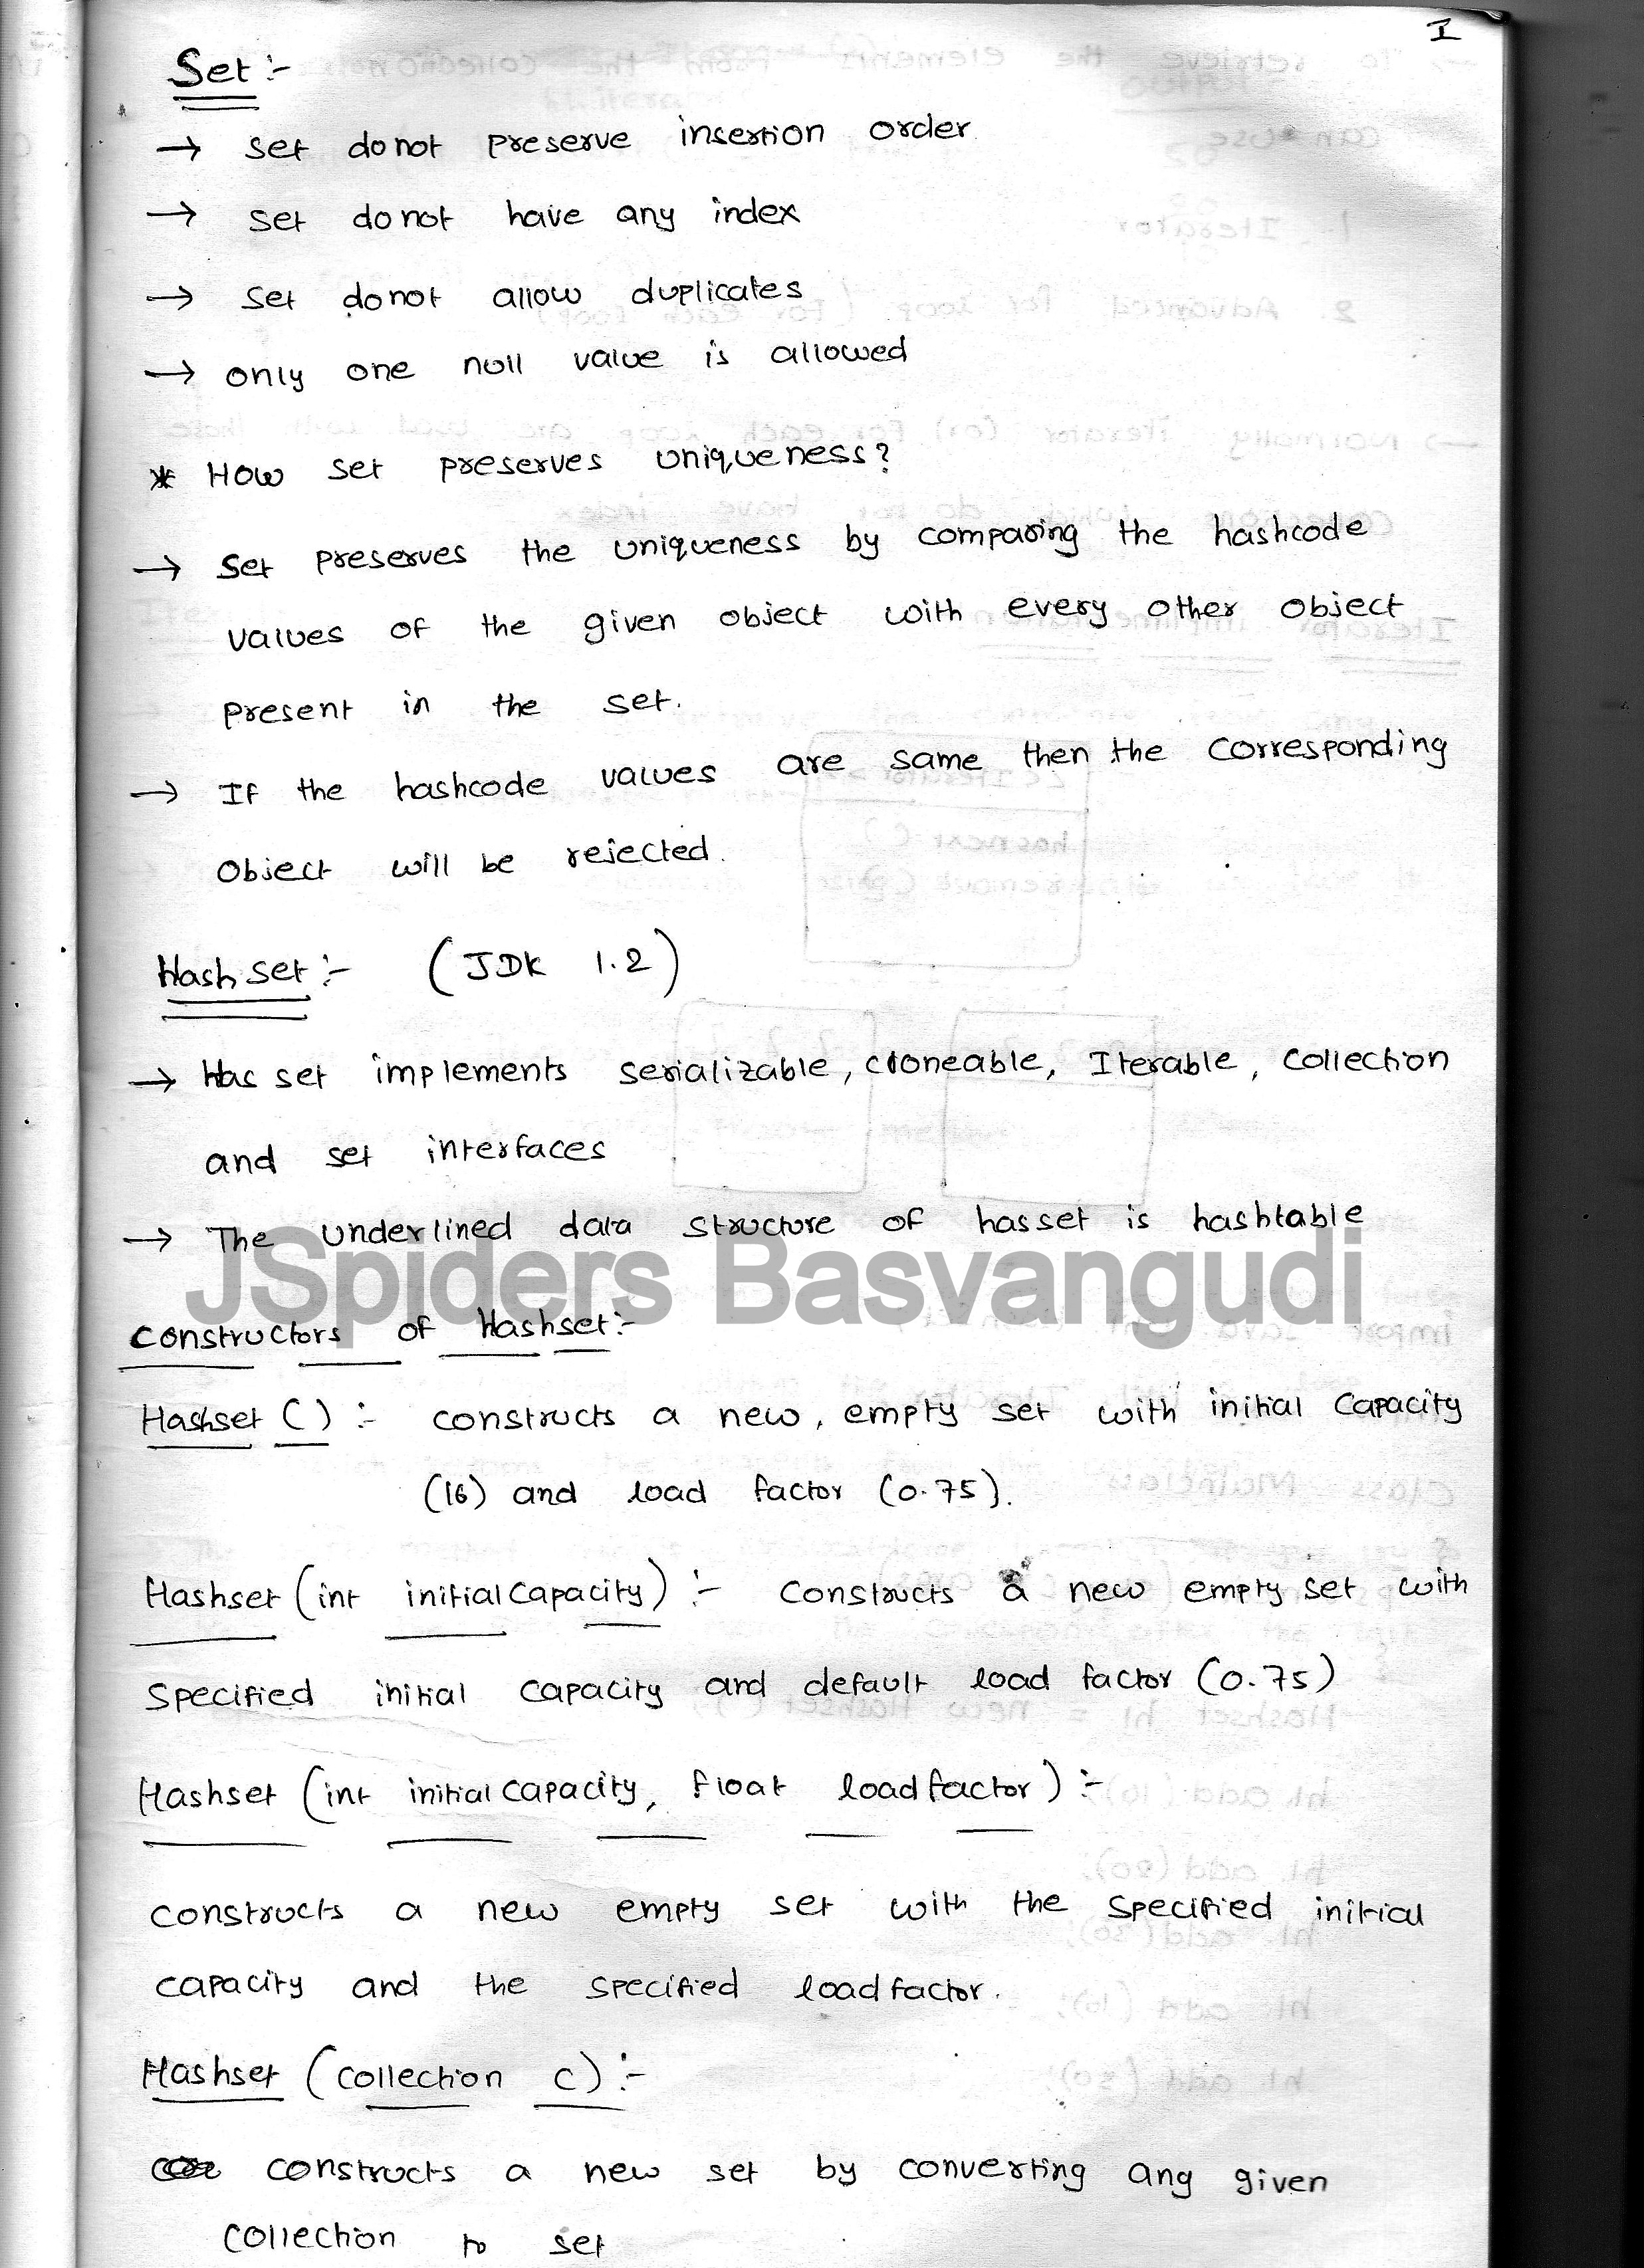 I
Set :-
→ set do not preserve insertion order
→ set do not have any index
→ set do not allow duplicates
→ only one null value is allowed
* How set preserves uniqueness?
→ Set preserves the uniqueness by comparing the hashcode
values of the given object with every other object
present in the set.
→ If the hashcode values are same then the corresponding
object will be rejected.
Hash set :- (JDK 1.2)
→ Has set implements serializable, cloneable, Iterable, collection
and set interfaces
→ The underlined data structure of hasset is hashtable
JSpiders Basvangudi
constructors of Hashset :-
Hashset ( ) :- constructs a new, empty set with initial capacity
(16) and load factor (0.75).
Hashset (int initial capacity) :- constructs a new empty set with
specified initial capacity and default load factor (0.75)
Hashset (int initial capacity, float load factor) :-
constructs a new empty set with the specified initial
capacity and the specified load factor.
Hashset (collection c) :-
constructs a new set by converting any given
collection to set